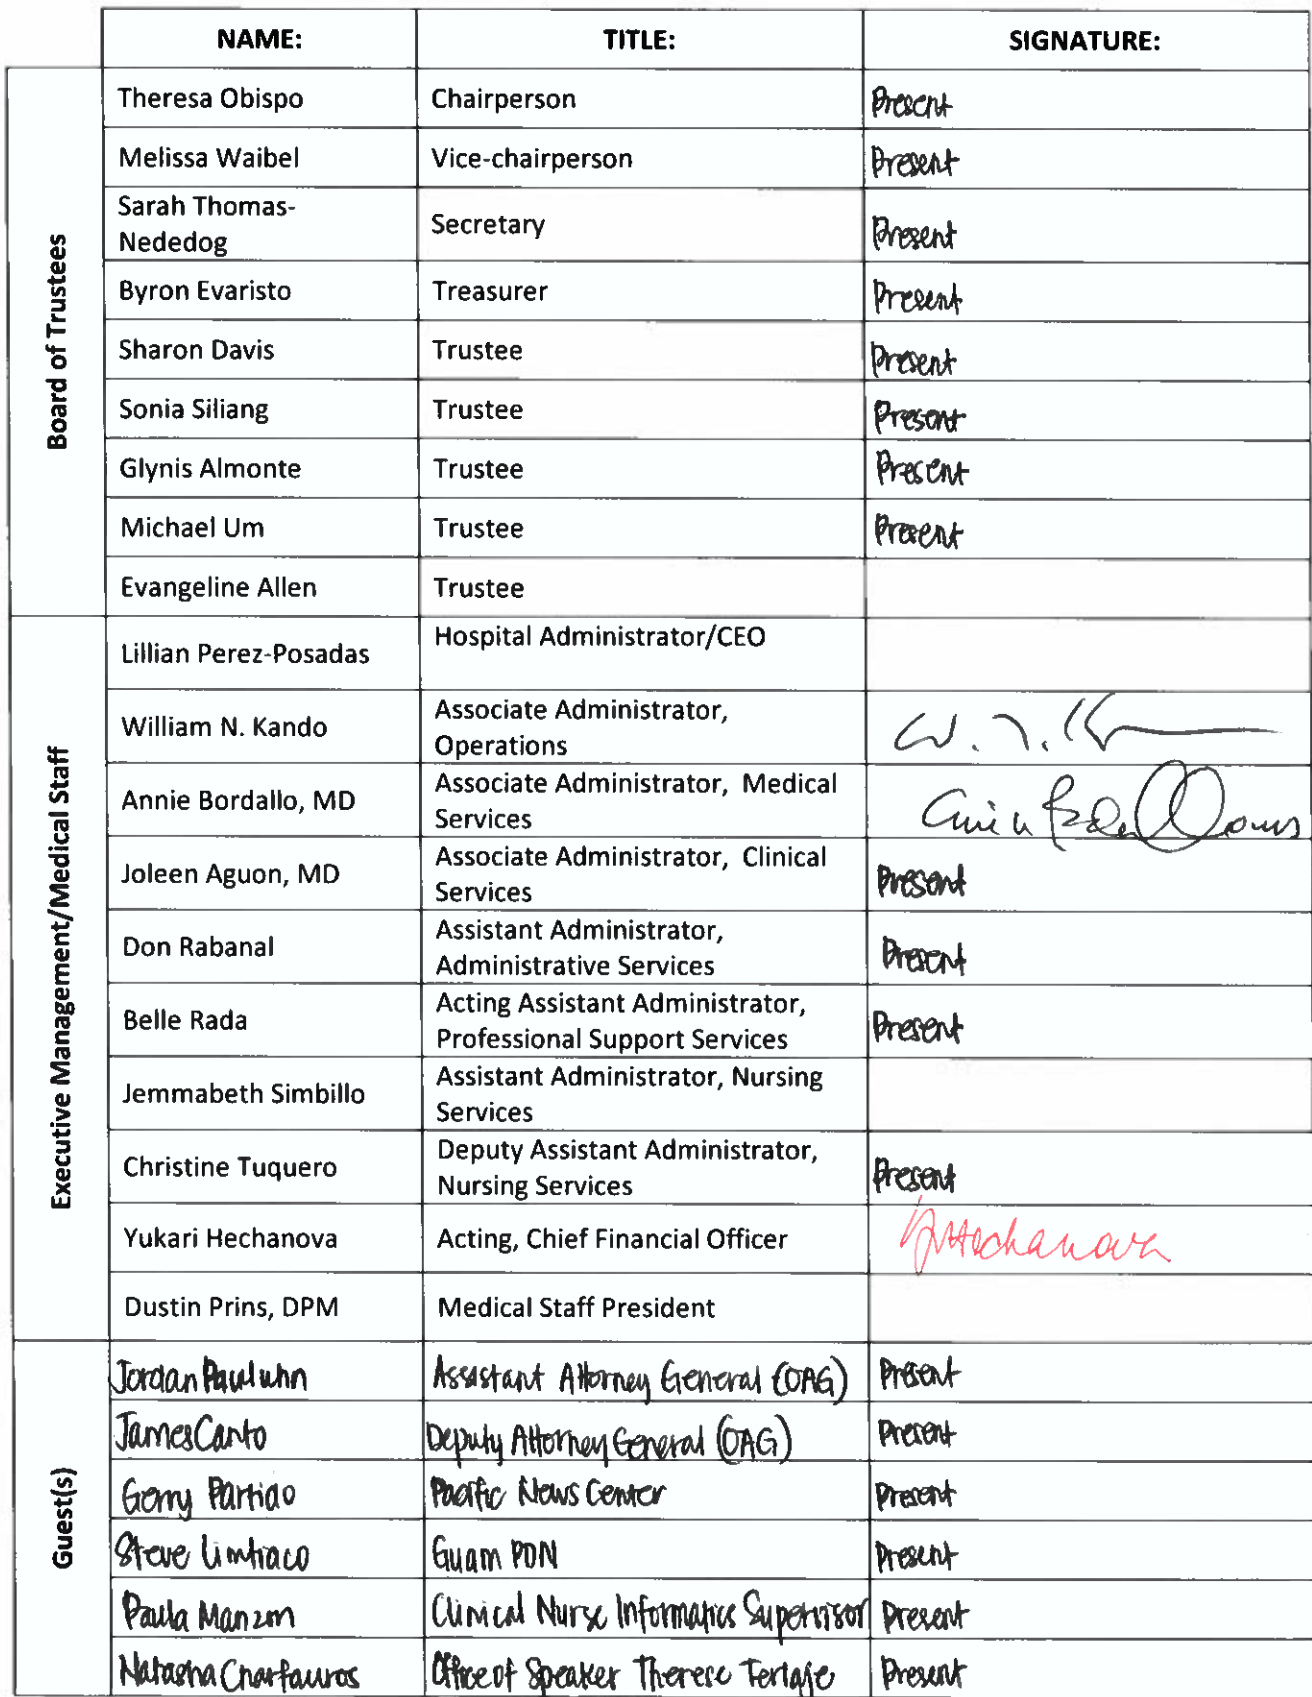 NAME: TITLE: SIGNATURE:
Board of Trustees
Theresa Obispo Chairperson Present
Melissa Waibel Vice-chairperson Present
Sarah Thomas-
Nededog Secretary Present
Byron Evaristo Treasurer Present
Sharon Davis Trustee Present
Sonia Siliang Trustee Present
Glynis Almonte Trustee Present
Michael Um Trustee Present
Evangeline Allen Trustee
Executive Management/Medical Staff
Lillian Perez-Posadas Hospital Administrator/CEO
William N. Kando Associate Administrator,
Operations
Annie Bordallo, MD Associate Administrator, Medical
Services
Joleen Aguon, MD Associate Administrator, Clinical
Services Present
Don Rabanal Assistant Administrator,
Administrative Services Present
Belle Rada Acting Assistant Administrator,
Professional Support Services Present
Jemmabeth Simbillo Assistant Administrator, Nursing
Services
Christine Tuquero Deputy Assistant Administrator,
Nursing Services Present
Yukari Hechanova Acting, Chief Financial Officer Hechanova
Dustin Prins, DPM Medical Staff President
Guest(s)
Jordan Pauluhn Assistant Attorney General (OAG) Present
James Canto Deputy Attorney General (OAG) Present
Gerry Partido Pacific News Center Present
Steve Limtiaco Guam PDN Present
Paula Manzon Clinical Nurse Informatics Supervisor Present
Natasha Charfauros Office of Speaker Therese Terlaje Present